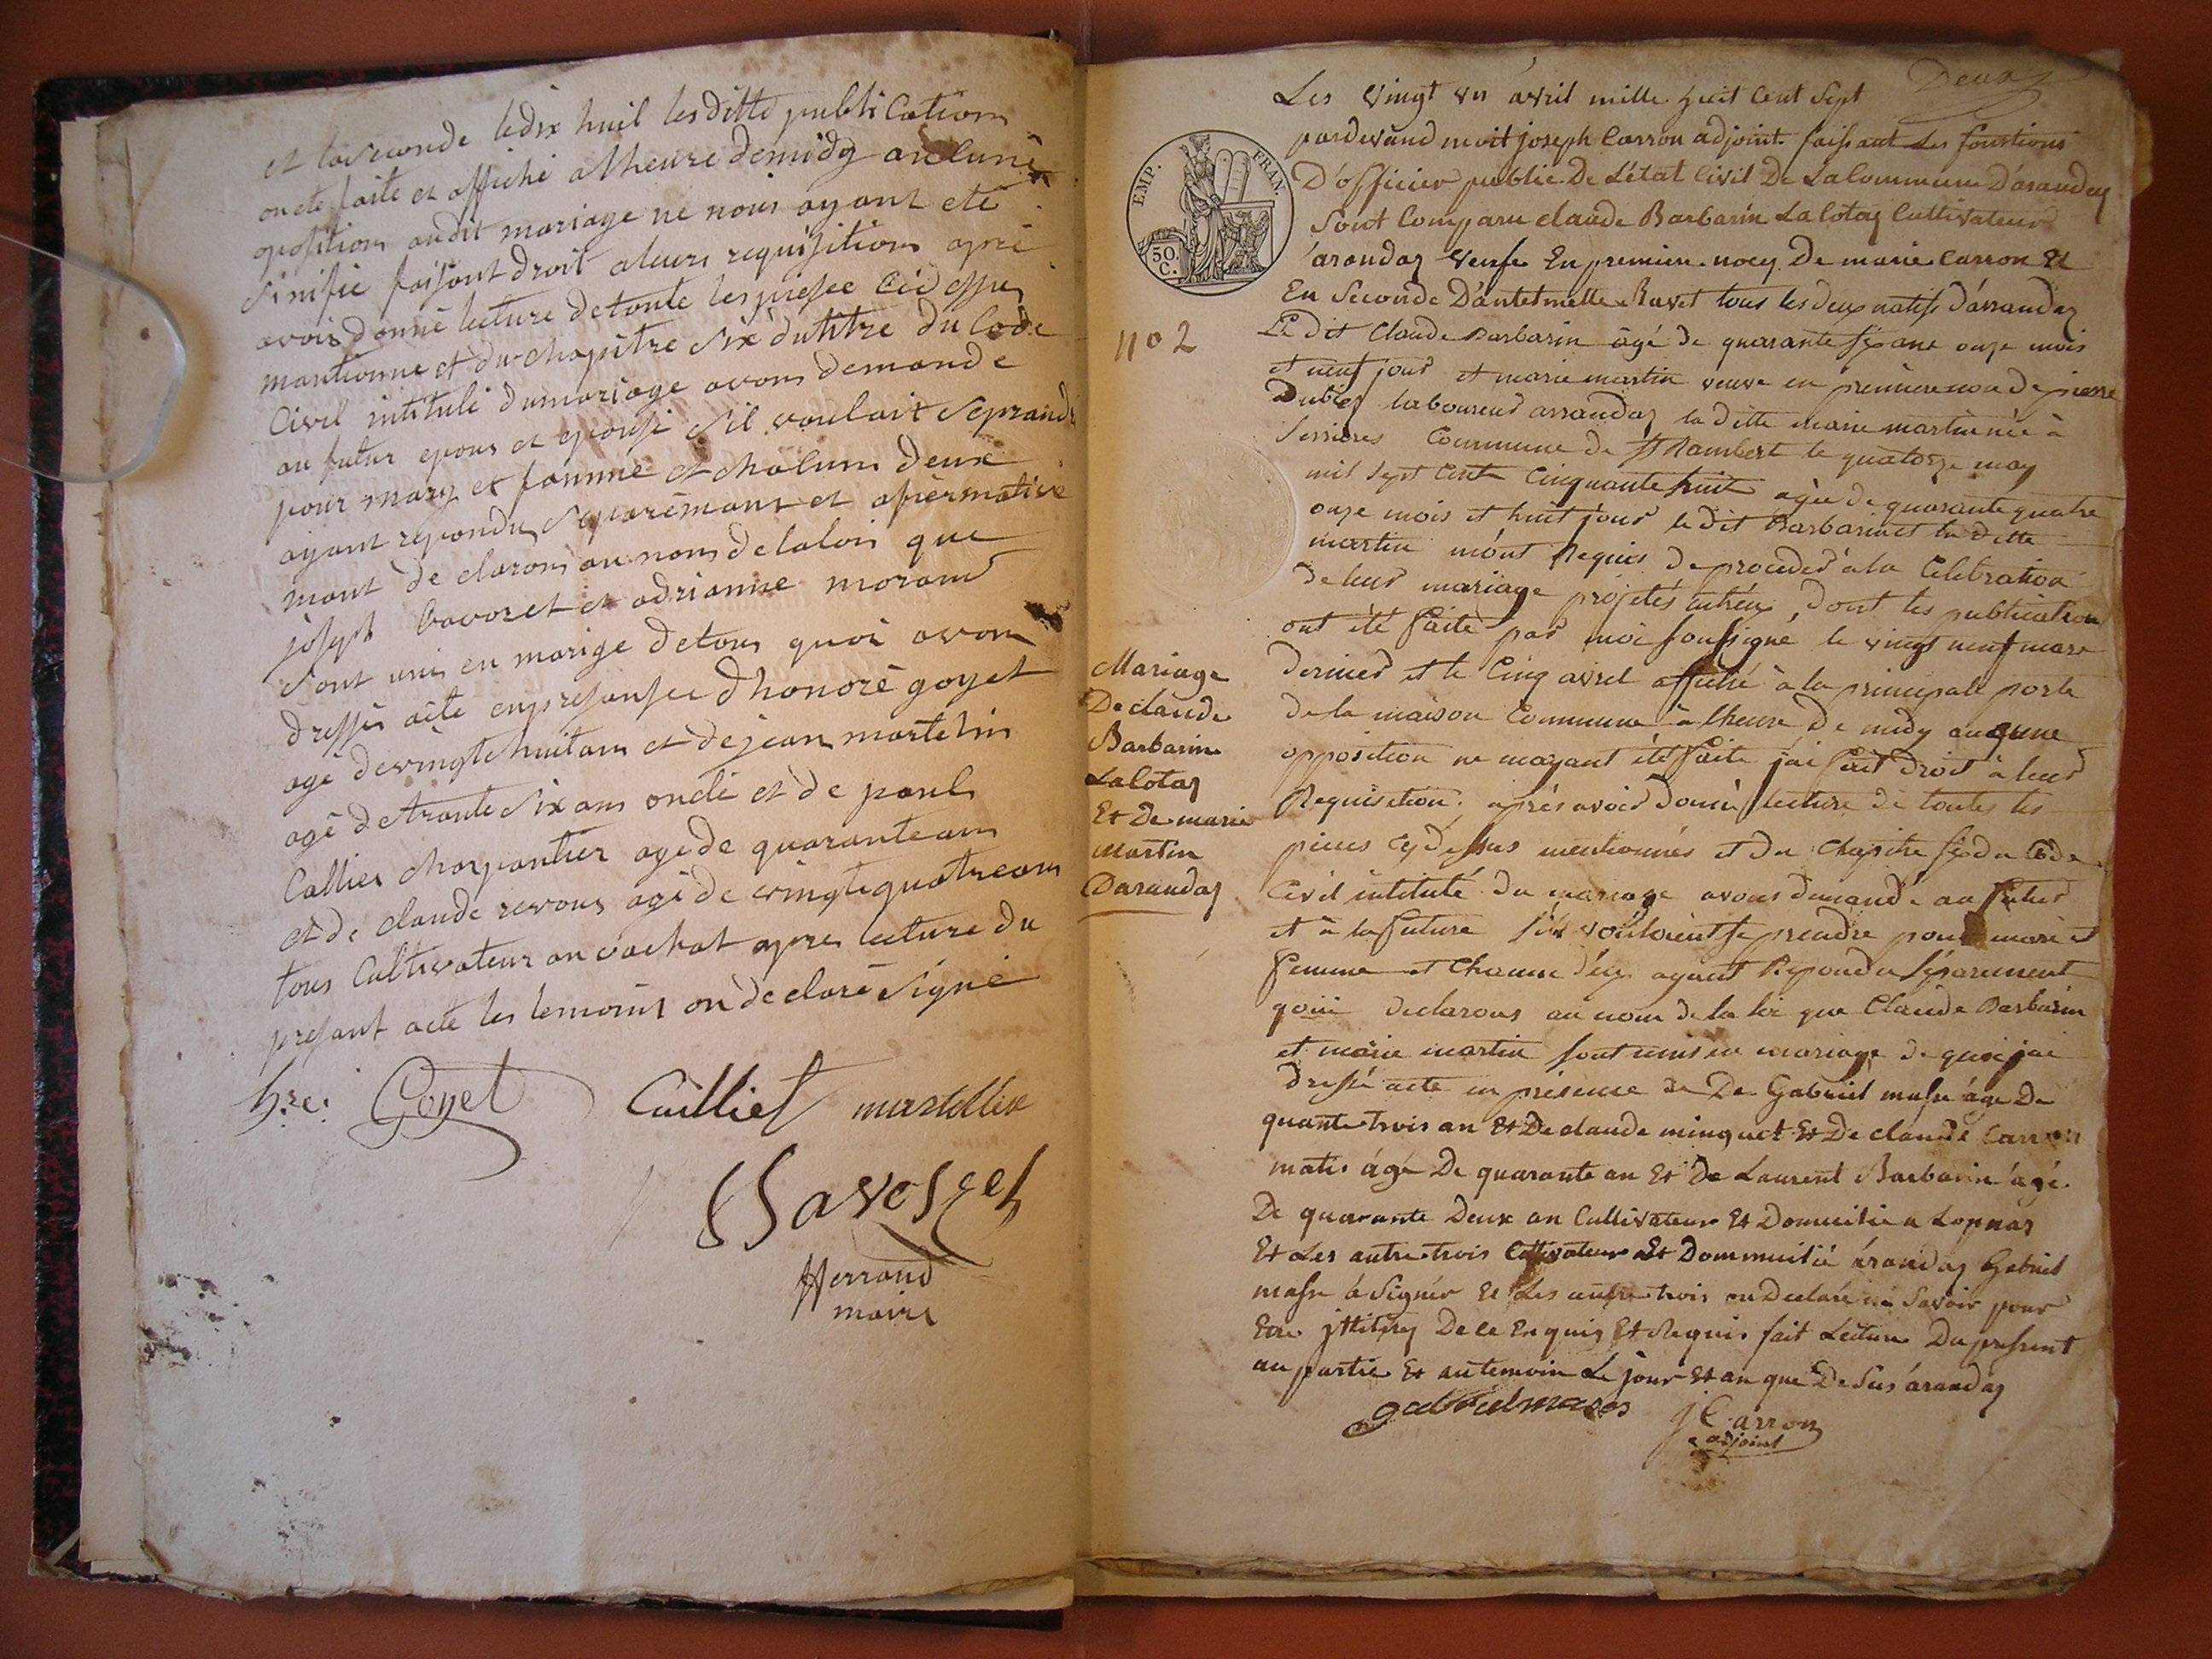 et la seconde le dix huit les ditte publication
on ete faite et affiché a lheure de midy aucune
opositions audit mariage ne nous ayant eté
sinifie faisant droit a leurs requisitions apré
avoir donné lecture de toute les piesee cid esus
mantionne et du chapitre six du titre du Code
Civil intitulé du mariage avons demande
au futur epous et epouse s'il voulait se prandre
pour mary et famme et chaluns deux
ayant repondu separémant et afiermative
mant de clarons au nom de la loi que
joseph Savozet et adrianne morand
sont unis en marige de tous quoi avons
dressés acte en presansee d'honoré goyet
agé de vingte huit ans et de jean martelin
agé de trante six ans oncle et de paul
Callies charpantier agé de quarante ans
et de claude revous agé de vingte quatre ans
tous Cultivateur au vachat apres lecture du
presant acte les temoins on declaré signé
h.re. Goyet Cailliet martellin
Savoszet
Herrand
maire
Deux
Les vingt un avril mille huit Cent Sept
pardevand moit joseph Carron adjoint faissant les fonctions
D'officier public De L'état Civil De La Commune D'arandas
EMP. FRAN.
50 C.
Sont Comparu claude Barbarin La Cotaz Cultivateur
arandaz veufe En premiere nocy De marie Carron Et
En Seconde D'antelmette Ravet tous les deux natifs d'arrandaz
n° 2
Le dit Claude Barbarin âgé de quarante six ans onze mois
et neuf jour et marie martin veuve en premiere noce de pierre
Dubiez laboureur arrandaz la ditte marie martin née à
Serrieres Commune de St Rambert le quatorze may
mil sept Cent Cinquante huit agée de quarante quatre
onze mois et huit jour le dit Barbarin et la ditte
martin m'ont Requis de proceder à la Celebration
de leur mariage projetés entr'eux, dont les publication
ont été faite par moi soussigné le vingt neuf mars
dernier et le Cinq avril affiché à la principale porte
de la maison Commune à lheure de midy aucune
opposition ne mayant été faite j'ai fait droit à leur
Requisition, après avoir donné lecture de toutes les
pieces cy dessus mentionnés et du Chapitre six du Code
Civil intitulé du mariage avons demandé au futur
et à la future s'ils vouloient se prendre pour mari et
femme et Chacune d'eux ayant Repondu séparement
qoui declarons au nom de la loi que Claude Barbarin
et marie martin sont unis en mariage de quoi jai
dressé acte en présence de De Gabriel masse âge De
quante trois an Et De claude minguet Et De claude Carron
matis âgé De quarante an Et De Laurent Barbarin âgé
De quarante Deux an Cultivateur Et Domicilie a Lopnas
Et Les autre trois Cultivateur Et Dommicilié arandas Gabriel
masse à Signér Et Les autre trois on Declaré ne Savoir pour
Etre De ce Enquis Et Requis fait Lecture Du present
au partie Et au temoin Le jour Et an que De Sus arandas
gabriel masse J Carron
adjoint
Mariage
De claude
Barbarin
La Cotaz
Et De marie
Martin
Darandas